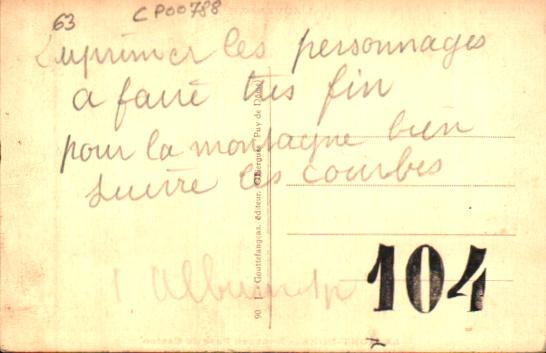 63 CP00788
les personnages
a faire très fin
pour la montagne bien
suivre les courbes
1 Album
104
90 J. - Gouttefangeas, éditeur, (Puy de Dôme)